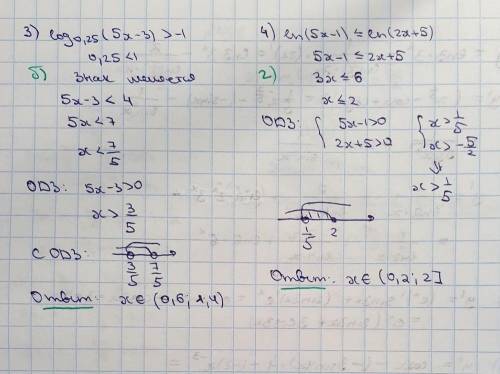 3) log₀,₂₅(5x-3) > -1
0,25<1
б) Знак меняется
5x-3 < 4
5x < 7
x < 7/5
ОДЗ: 5x-3>0
x > 3/5
С ОДЗ:
3/5 7/5
Ответ: x∈(0,6; 1,4)
4) ln(5x-1) ≤ ln(2x+5)
5x-1 ≤ 2x+5
2) 3x ≤ 6
x ≤ 2
ОДЗ: { 5x-1>0 { x > 1/5
2x+5>0 x > -5/2
⇓
x > 1/5
1/5 2
Ответ: x∈(0,2; 2]